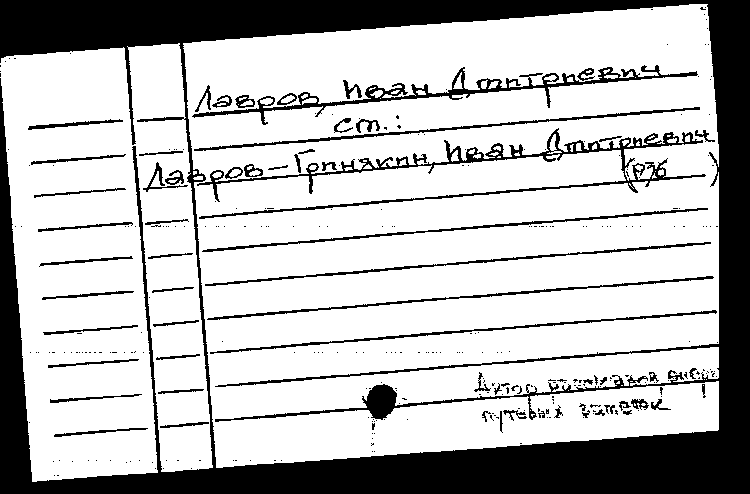 Лавров, Иван Дмитриевич
ст.:
Лавров-Гринякин, Иван Дмитриевич
Автор рассказов, очер
путевых заметок